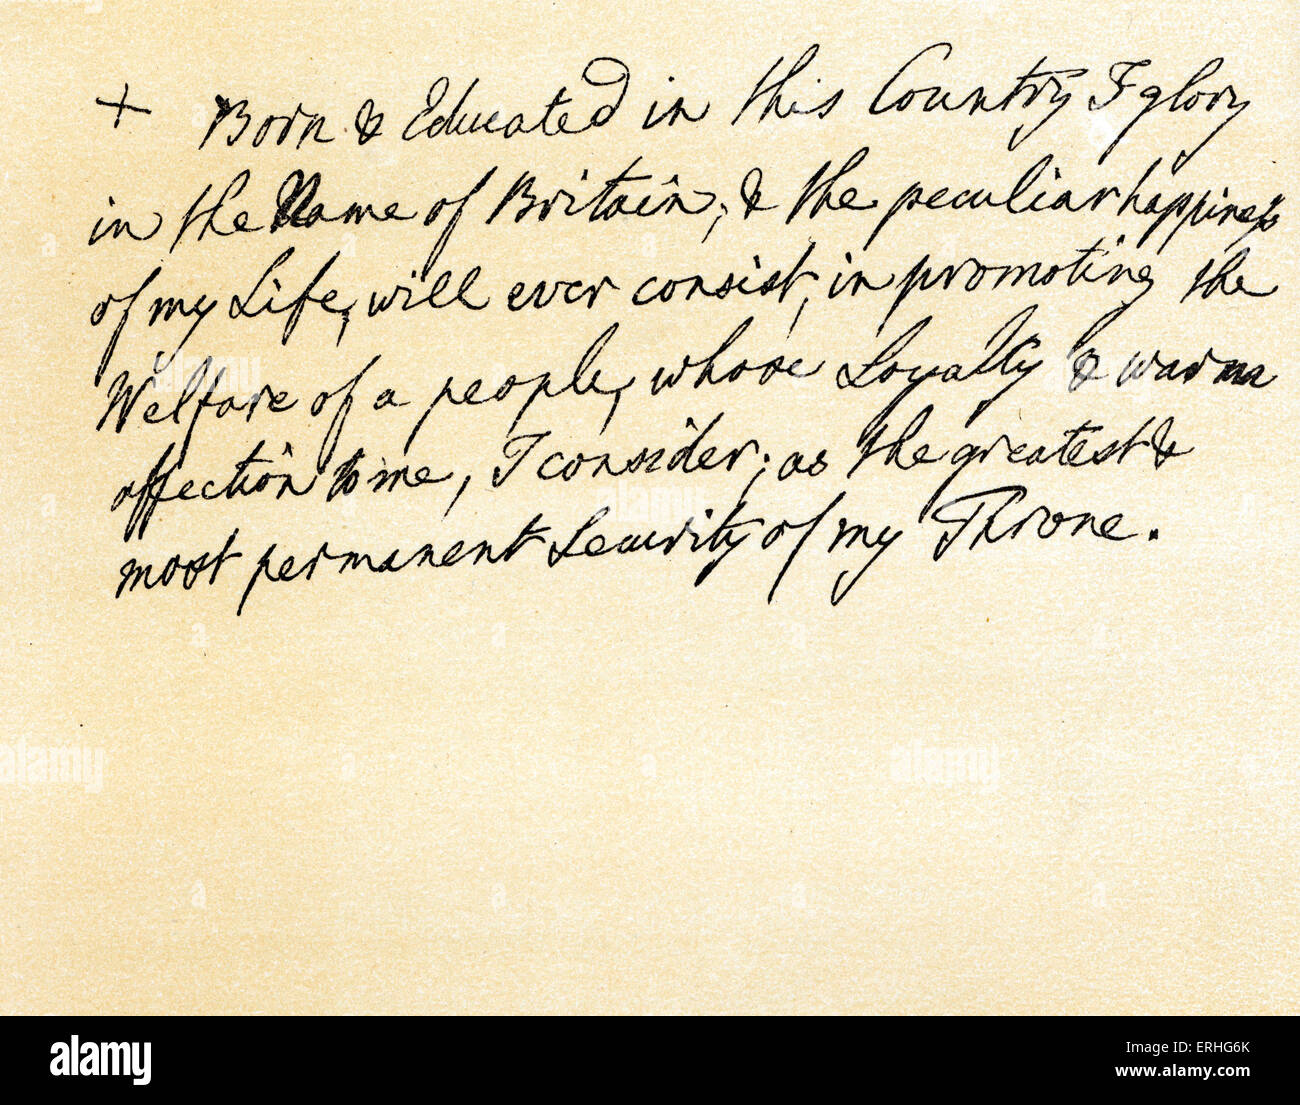 + Born & Educated in this Country I glory
in the Name of Britain; & the peculiar happiness
of my Life, will ever consist, in promoting the
Welfare of a people, whose Loyalty & warm
affection to me, I consider; as the greatest &
most permanent Security of my Throne.
alamy
a
alamy stock photo
ERHG6K
www.alamy.com